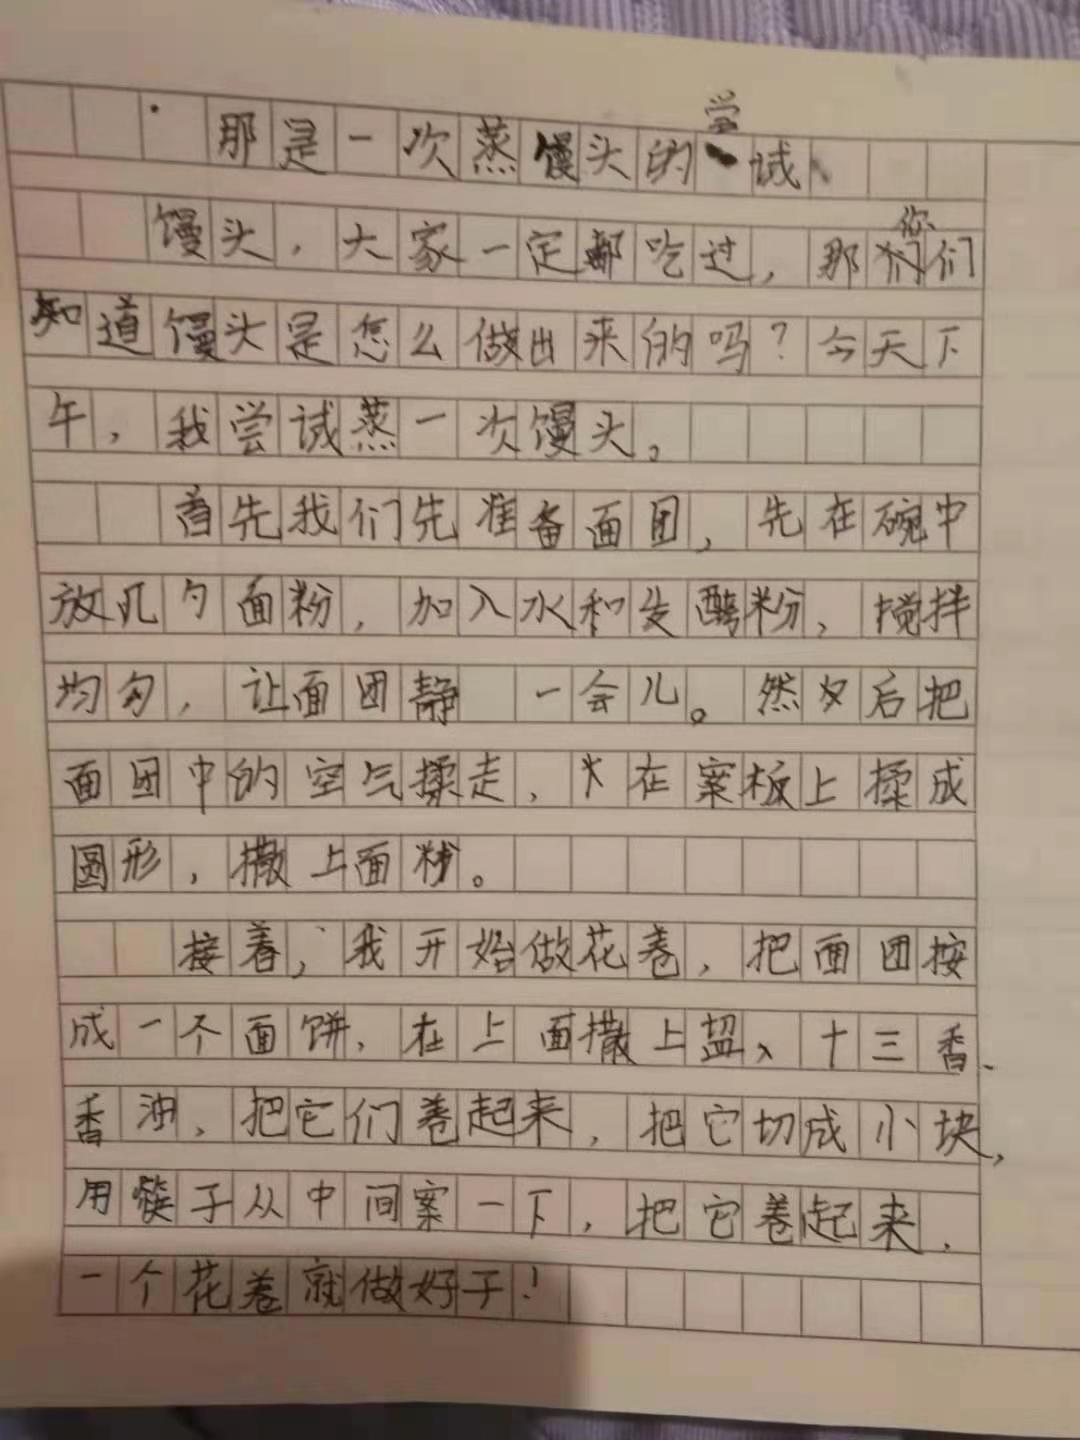 那是一次蒸馒头的尝试
馒头，大家一定都吃过，那你们
知道馒头是怎么做出来的吗？今天下
午，我尝试蒸一次馒头。
首先我们先准备面团，先在碗中
放几勺面粉，加入水和发酵粉，搅拌
均匀，让面团静 一会儿。然后把
面团中的空气揉走，在案板上揉成
圆形，撒上面粉。
接着，我开始做花卷，把面团按
成一个面饼，在上面撒上盐、十三香、
香油，把它们卷起来，把它切成小块，
用筷子从中间案一下，把它卷起来，
一个花卷就做好子！